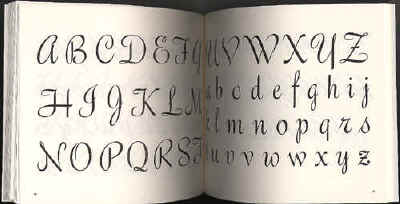 A B C D E F G
H I J K L M
N O P Q R S T
U V W X Y Z
a b c d e f g h i j
k l m n o p q r s
t u v v w x y z